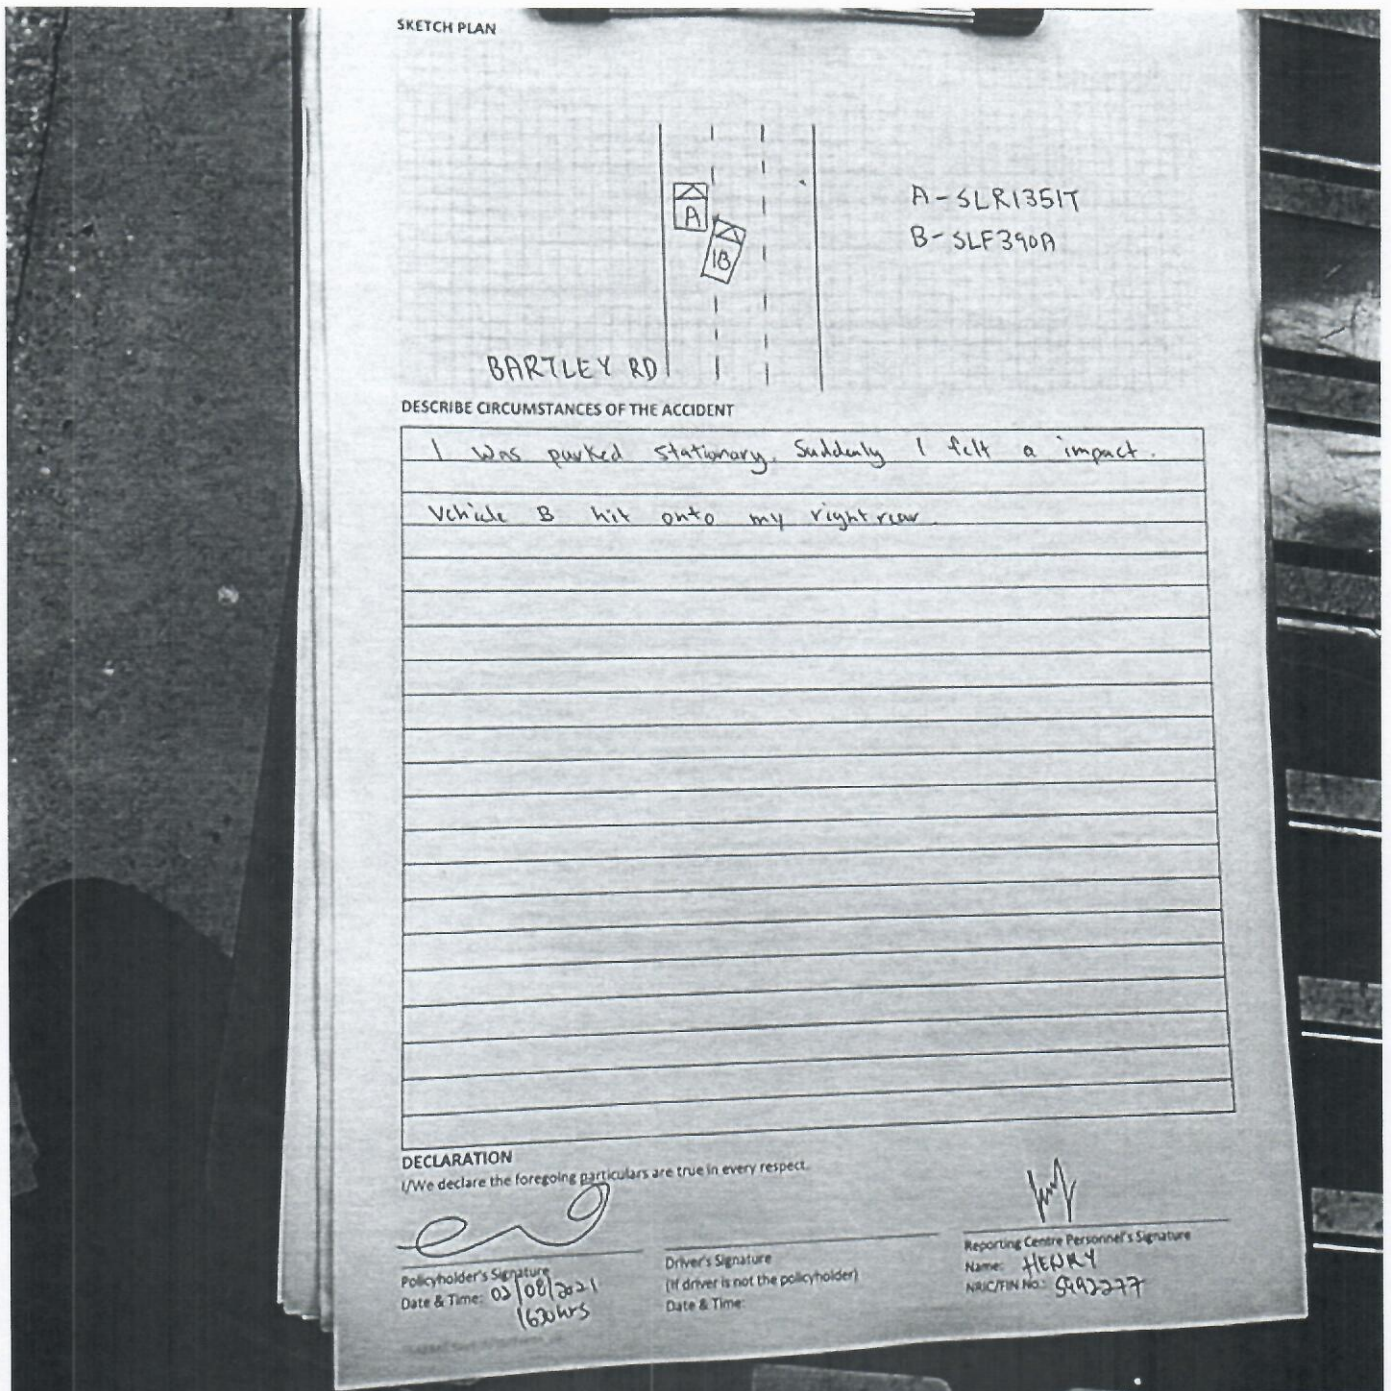 SKETCH PLAN
A
B
A - SLR1351T
B - SLF390A
BARTLEY RD
DESCRIBE CIRCUMSTANCES OF THE ACCIDENT
I was parked stationary. Suddenly I felt a impact.
Vehicle B hit onto my right rear
DECLARATION
I/We declare the foregoing particulars are true in every respect.
Policyholder's Signature
Date & Time: 02/08/2021
1630hrs
Driver's Signature
(If driver is not the policyholder)
Date & Time:
Reporting Centre Personnel's Signature
Name: HENRY
NRIC/FIN No.: